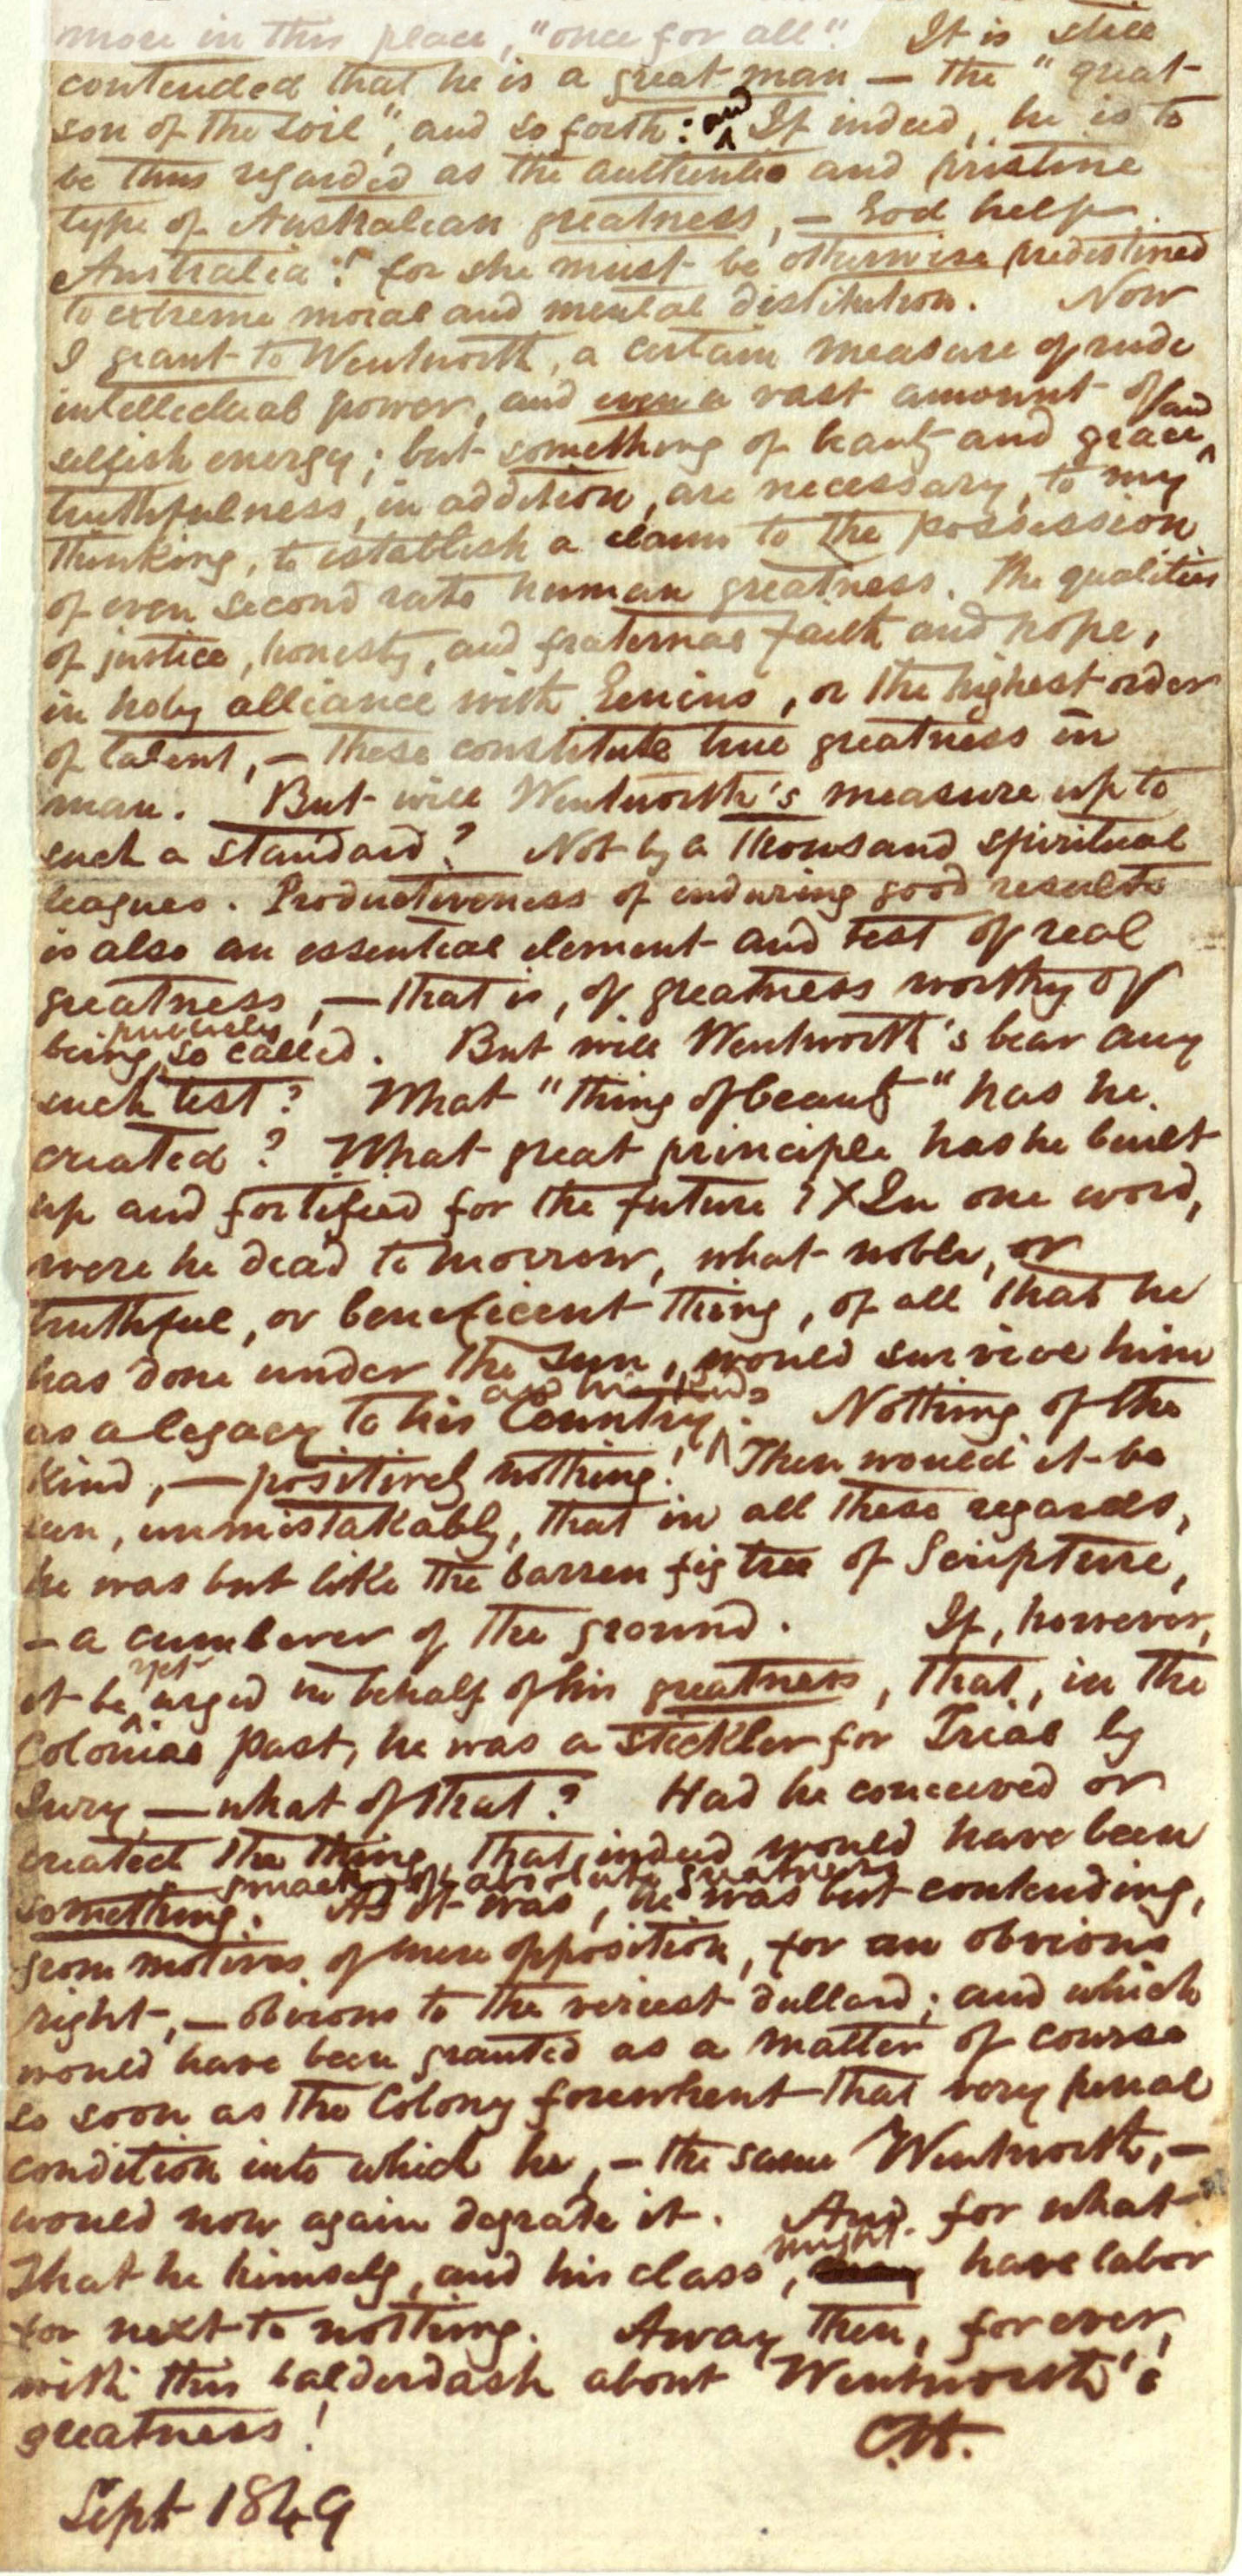 more in this place, "once for all". It is still
contended that he is a great man — the "great
son of the soil", and so forth: and If indeed, he is to
be thus regarded as the authentic and pristine
type of Australian greatness, — God help
Australia! for she must be otherwise predestined
to extreme moral and mental distitution. Now
I grant to Wentworth, a certain measure of rude
intellectual power, and even a vast amount of
selfish energy; but something of beauty and grace, and
truthfulness, in addition, are necessary, to my
thinking, to establish a claim to the possession
of even second rate human greatness. The qualities
of justice, honesty, and fraternal faith and hope,
in holy alliance with Genius, or the highest order
of talent, — these constitute true greatness in
man. But will Wentworth's measure up to
such a standard? Not by a thousand spiritual
leagues. Productiveness of enduring good results
is also an essential element and test of real
greatness, — that is, of greatness worthy of
being precisely so called. But will Wentworth's bear any
such test? What "thing of beauty" has he
created? What great principle has he built
up and fortified for the future? X In one word,
were he dead to morrow, what noble, or
truthful, or beneficent thing, of all that he
has done under the sun, would survive him
as a legacy to his Country and his kind? Nothing of the
kind, — positively nothing! Then would it be
seen, unmistakably, that in all these regards,
he was but like the barren fig tree of Scripture,
— a cumberer of the ground. If, however,
it be yet urged in behalf of his greatness, that, in the
Colonial past, he was a stickler for Trial by
Jury — what of that? Had he conceived or
created the thing, that indeed would have been
something smacking of absolute greatness. As it was, he was but contending,
from motives of mere opposition, for an obvious
right, — obvious to the veriest dullard; and which
would have been granted as a matter of course
so soon as the Colony forewhent that very penal
condition into which he, — the same Wentworth, —
would now again degrade it. And for what
That he himself, and his class, might have labor
for next to nothing. Away then, for ever,
with this balderdash about Wentworth's
greatness! C.H.
Sept 1849